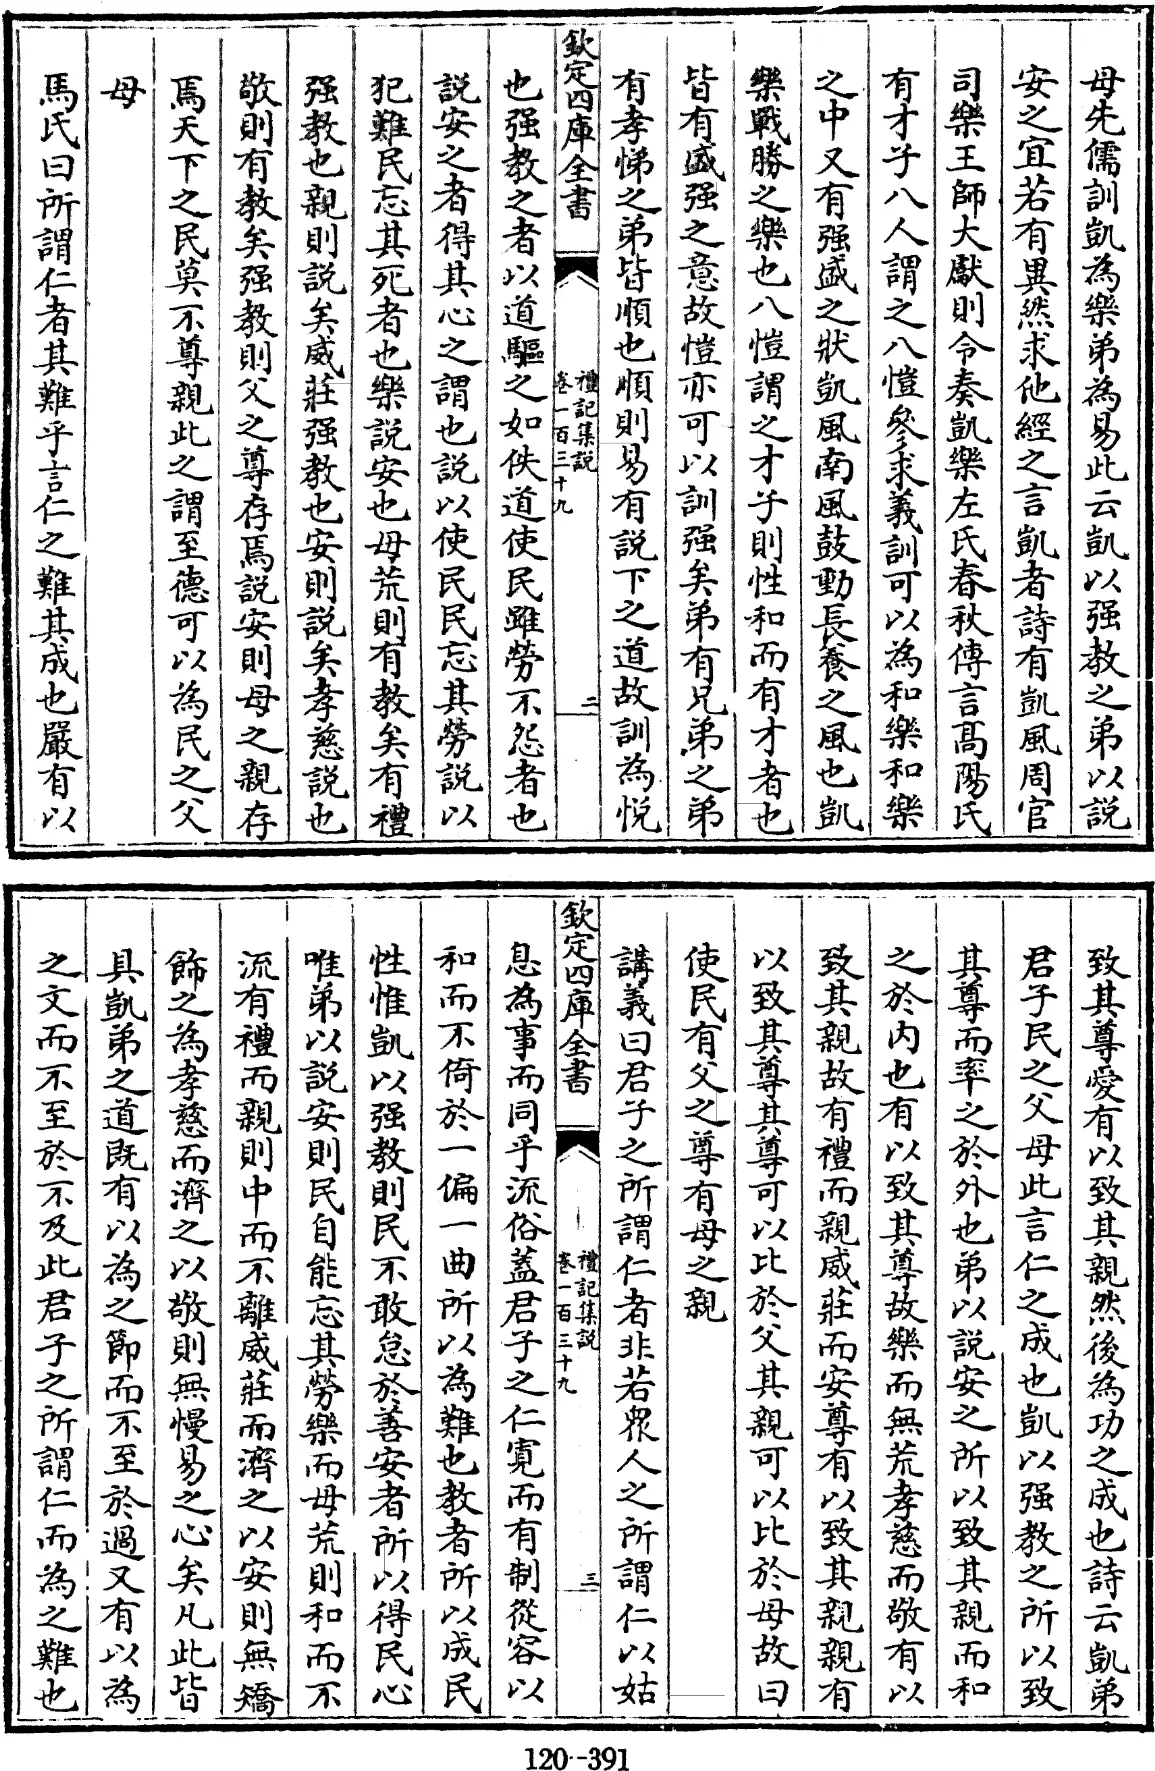 母先儒訓凱為樂弟為易此云凱以强教之弟以説
安之宜若有異然求他經之言凱者詩有凱風周官
司樂王師大獻則令奏凱樂左氏春秋傳言髙陽氏
有才子八人謂之八愷參求義訓可以為和樂和樂
之中又有强盛之狀凱風南風鼓動長養之風也凱
樂戰勝之樂也八愷謂之才子則性和而有才者也
皆有盛强之意故愷亦可以訓强矣弟有兄弟之弟
有孝悌之弟皆順也順則易有説下之道故訓為悦
欽定四庫全書
禮記集説
卷一百三十九
二
也强教之者以道驅之如佚道使民雖勞不怨者也
説安之者得其心之謂也説以使民民忘其勞説以
犯難民忘其死者也樂説安也毋荒則有教矣有禮
强教也親則説矣威莊强教也安則説矣孝慈説也
敬則有教矣强教則父之尊存焉説安則母之親存
焉天下之民莫不尊親此之謂至德可以為民之父
母
馬氏曰所謂仁者其難乎言仁之難其成也嚴有以
致其尊愛有以致其親然後為功之成也詩云凱弟
君子民之父母此言仁之成也凱以强教之所以致
其尊而率之於外也弟以説安之所以致其親而和
之於内也有以致其尊故樂而無荒孝慈而敬有以
致其親故有禮而親威莊而安尊有以致其親親有
以致其尊其尊可以比於父其親可以比於母故曰
使民有父之尊有母之親
講義曰君子之所謂仁者非若衆人之所謂仁以姑
欽定四庫全書
禮記集説
卷一百三十九
三
息為事而同乎流俗蓋君子之仁寛而有制從容以
和而不倚於一偏一曲所以為難也教者所以成民
性惟凱以强教則民不敢怠於善安者所以得民心
唯弟以説安則民自能忘其勞樂而毋荒則和而不
流有禮而親則中而不離威莊而濟之以安則無矯
飾之為孝慈而濟之以敬則無慢易之心矣凡此皆
具凱弟之道既有以為之節而不至於過又有以為
之文而不至於不及此君子之所謂仁而為之難也
120-391